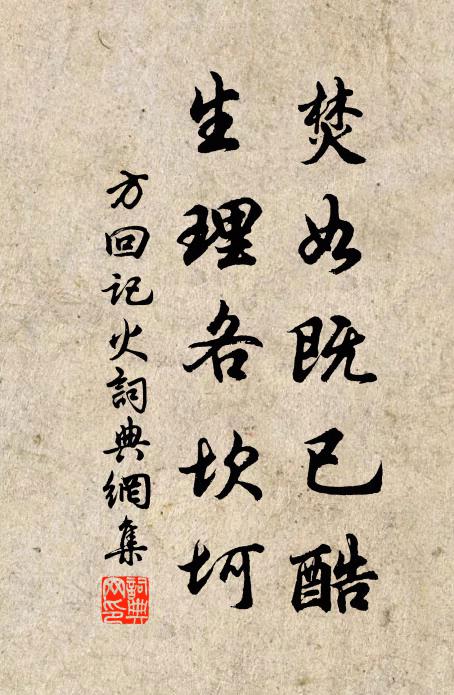 焚如既已酷
生理各坎坷
方回記火詞典網集
詞典網印